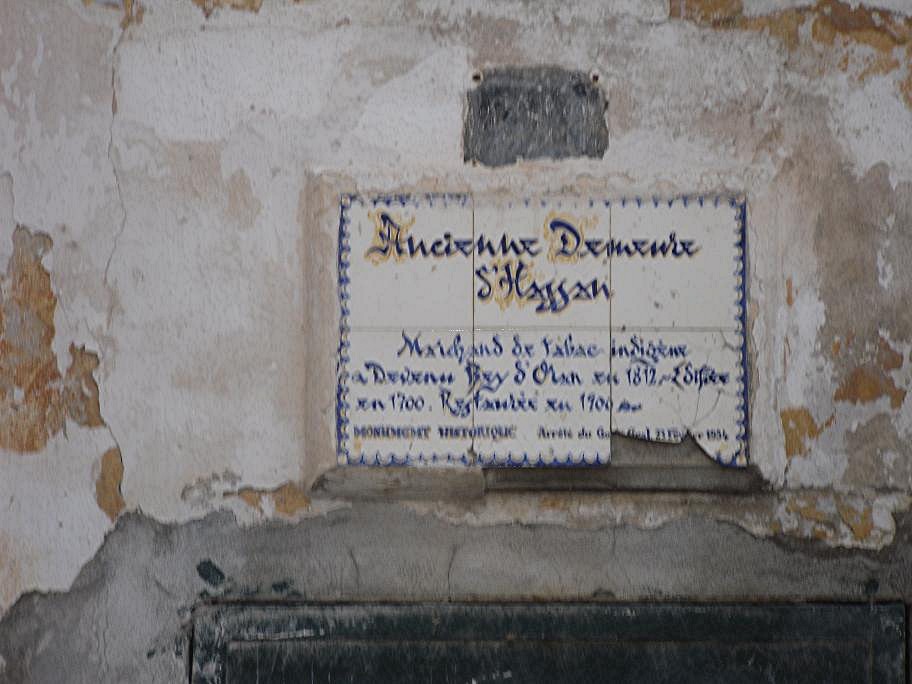 Ancienne Demeure
d'Hassan
Marchand de Tabac indigène
Devenu Bey d'Oran en 1812, Edifiée
en 1700. Restaurée en 1706
MONUMENT HISTORIQUE Arrêté du 1954